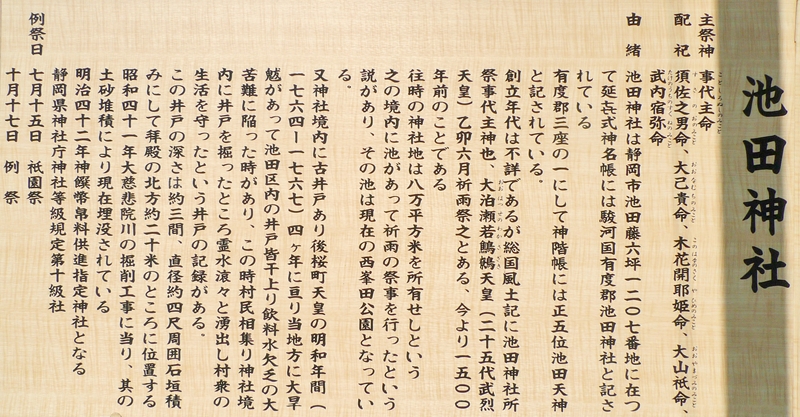 池田神社
主祭神 事代主命
配祀 須佐之男命、大己貴命、木花開耶姫命、大山祇命、
武内宿弥命
由緒 池田神社は静岡市池田藤六坪一二〇七番地に在つ
て延㐂式神名帳には駿河国有度郡池田神社と記さ
れている
有度郡三座の一にして神階帳には正五位池田天神
と記されている。
創立年代は不詳であるが総国風土記に池田神社所
祭事代主神也、大泊瀬若鷦鷯天皇（二十五代武烈
天皇）乙卯六月祈雨祭之とある、今より一五〇〇
年前のことである
往時の神社地は八万平方米を所有せしという
之の境内に池があって祈雨の祭事を行ったという
説があり、その池は現在の西峯田公園となってい
る。
又神社境内に古井戸あり後桜町天皇の明和年間（
一七六四ー一七六七）四ヶ年に亘り当地方に大旱
魃があって池田区内の井戸皆干上り飲料水欠乏の大
苦難に陥った時があり、この時村民相集り神社境
内に井戸を掘ったところ霊水滾々と湧出し村衆の
生活を守ったという井戸の記録がある。
この井戸の深さは約三間、直径約四尺周囲石垣積
みにして拝殿の北方約二十米のところに位置する
昭和四十一年大慈悲院川の掘削工事に当り、其の
土砂堆積により現在埋没されている
明治四十二年神饌幣帛料供進指定神社となる
静岡県神社庁神社等級規定第十級社
例祭日 七月十五日 祇園祭
十月十七日 例祭